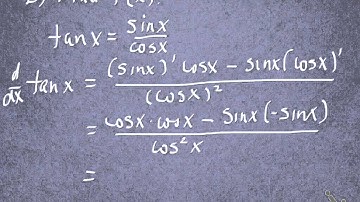 tanx = sinx/cosx
d/dx tanx = (sinx)' cosx - sinx(cosx)' / (cosx)²
= cosx · cosx - sinx(-sinx) / cos²x
=